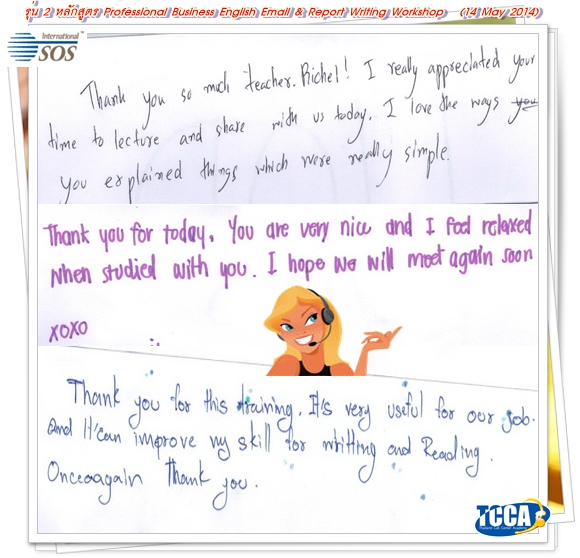 รุ่น 2 หลักสูตร Professional Business English Email & Report Writing Workshop (14 May 2014)
International
SOS
Thank you so much teacher. Richel! I really appreciated your
time to lecture and share with us today. I love the ways you
you explained things which were really simple.
Thank you for today. You are very nice and I feel relaxed
when studied with you. I hope we will meet again soon
XOXO
Thank you for this training. It's very useful for our job.
And It'can improve my skill for whitting and Reading.
Onceoagain Thank you.
TCCA
Thailand Call Center Academy